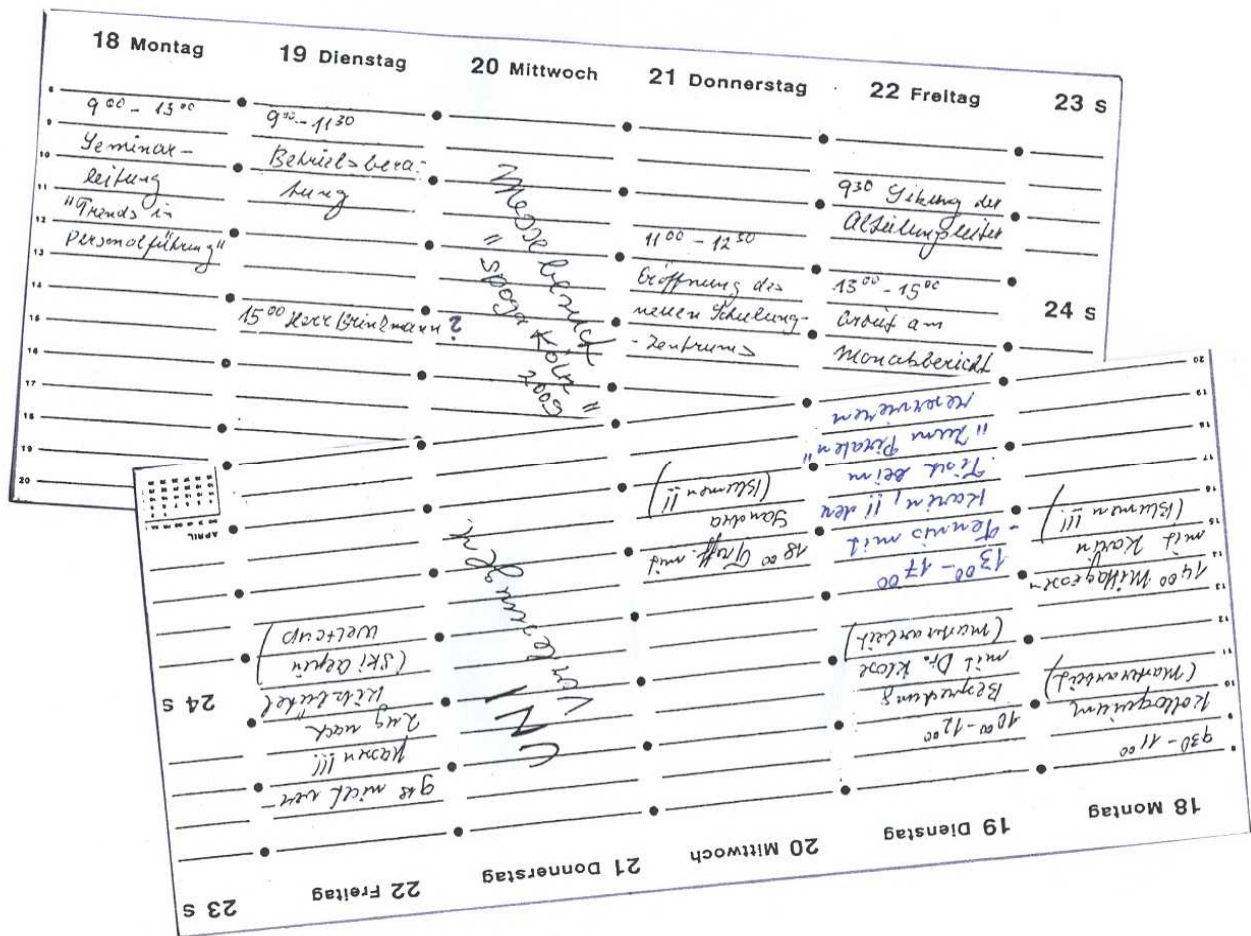 18 Montag
19 Dienstag
20 Mittwoch
21 Donnerstag
22 Freitag
23 S
24 S
8
9
10
11
12
13
14
15
16
17
18
19
20
9 00 - 13 00
Seminar-
leitung
"Trends in
Personalführung"
9 30 - 11 30
Betriebsbera-
tung
15 00 Herr Brinkmann ?
Messebesuch
"spoga Köln"
2009
11 00 - 12 30
Eröffnung des
neuen Schulung-
-zentrums
9 30 Sitzung der
Abteilungsleiter
13 00 - 15 00
Arbeit am
Monatsbericht
18 Montag
19 Dienstag
20 Mittwoch
21 Donnerstag
22 Freitag
23 S
24 S
10
11
12
13
14
15
16
17
18
19
20
9 30 - 11 00
Kolloquium
(Masterarbeit)
14 00 Mittagessen
mit Karin
(Blumen !!!)
10 00 - 12 00
Besprechung
mit Dr. Klose
(Masterarbeit)
13 00 - 17 00
- Tennis mit
Karin, !! den
Tisch beim
"Zum Piraten"
reservieren
18 00 Treff. mit
Sandra
(Blumen !!)
UNI
Vorlesungen
9 18 nicht ver-
passen !!!
Zug nach
Kitzbühel
(Ski Alpin
Weltcup)
APRIL